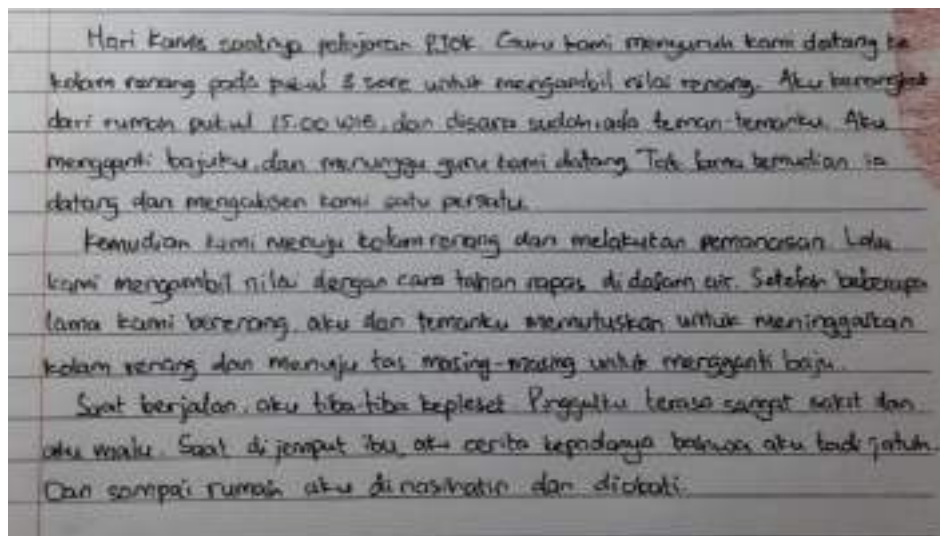 Hari Kamis saatnya pelajaran PJOK. Guru kami menyuruh kami datang ke
kolam renang pada pukul 3 sore untuk mengambil nilai renang. Aku berangkat
dari rumah pukul 15.00 WIB, dan disana sudah ada teman-temanku. Aku
mengganti bajuku, dan menunggu guru kami datang. Tak lama kemudian ia
datang dan mengabsen kami satu persatu.
Kemudian kami menuju kolam renang dan melakukan pemanasan. Lalu
kami mengambil nilai dengan cara tahan napas di dalam air. Setelah beberapa
lama kami berenang, aku dan temanku memutuskan untuk meninggalkan
kolam renang dan menuju tas masing-masing untuk mengganti baju.
Saat berjalan, aku tiba-tiba kepleset. Pinggulku terasa sangat sakit dan
aku malu. Saat di jemput ibu, aku cerita kepadanya bahwa aku tadi jatuh.
Dan sampai rumah aku di nasihatin dan diobati.